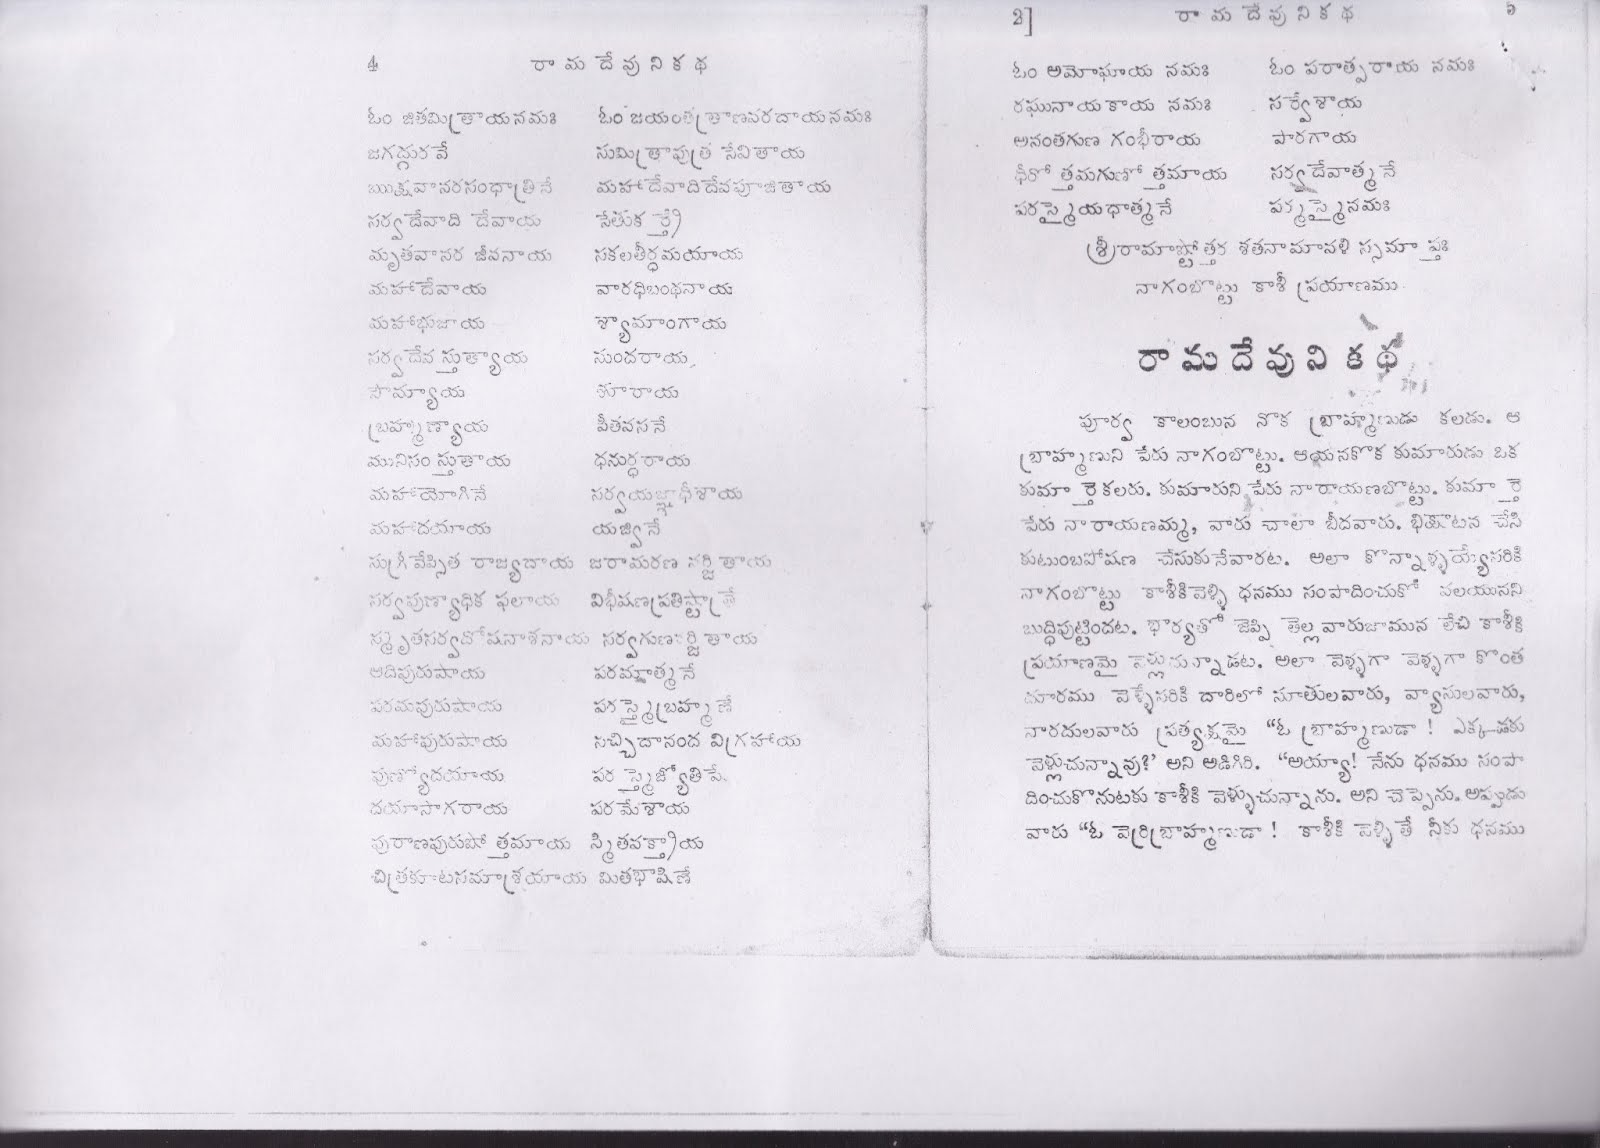 4 రా మ దే వు ని క థ
ఓం జితమిత్రాయనమః ఓం జయంతత్రాణవరదాయనమః
జగద్గురవే సుమిత్రాపుత్ర సేవితాయ
ఋక్షవానరసంఘాత్రినే మహాదేవాదిదేవపూజితాయ
సర్వదేవాది దేవాయ సేతుకర్త్రే
మృతవానర జీవనాయ సకలతీర్థమయాయ
మహాదేవాయ వారధిబంధనాయ
మహాభుజాయ శ్యామాంగాయ
సర్వదేవ స్తుత్యాయ సుందరాయ
సౌమ్యాయ శూరాయ
బ్రహ్మణ్యాయ పీతవసనే
మునిసం స్తుతాయ ధనుర్ధరాయ
మహాయోగినే సర్వయజ్ఞాధీశాయ
మహాదయాయ యజ్వినే
సుగ్రీవేప్సిత రాజ్యదాయ జరామరణ వర్జితాయ
సర్వపుణ్యాధిక ఫలాయ విభీషణప్రతిష్ఠాత్రే
స్మృతసర్వదోషనాశనాయ సర్వగుణవర్జితాయ
ఆదిపురుషాయ పరమాత్మనే
పరమపురుషాయ పరస్మైబ్రహ్మణే
మహాపురుషాయ సచ్చిదానంద విగ్రహాయ
పుణ్యోదయాయ పరస్మైజ్యోతిషే
దయాసాగరాయ పరమేశాయ
పురాణపురుషోత్తమాయ స్మితవక్త్రాయ
చిత్రకూటసమాశ్రయాయ మితభాషిణే
2] రా మ దే వు ని క థ
ఓం అమోఘాయ నమః ఓం పరాత్పరాయ నమః
రఘునాయకాయ నమః సర్వేశాయ
అనంతగుణ గంభీరాయ పారగాయ
ధీరోత్తమగుణోత్తమాయ సర్వదేవాత్మనే
పరస్మైయధాత్మనే పర్మస్మైనమః
శ్రీరామాష్టోత్తర శతనామావళి స్సమాప్తః
నాగంబొట్టు కాశీ ప్రయాణము
రా మ దే వు ని క థ
పూర్వ కాలంబున నొక బ్రాహ్మణుడు కలడు. ఆ
బ్రాహ్మణుని పేరు నాగంబొట్టు. ఆయనకొక కుమారుడు ఒక
కుమార్తె కలరు. కుమారుని పేరు నారాయణబొట్టు. కుమార్తె
పేరు నారాయణమ్మ, వారు చాలా బీదవారు. భిక్షాటన చేసి
కుటుంబపోషణ చేసుకునేవారట. అలా కొన్నాళ్ళయ్యేసరికి
నాగంబొట్టు కాశీకివెళ్ళి ధనము సంపాదించుకో వలయునని
బుద్ధిపుట్టిందట. భార్యతో జెప్పి తెల్లవారుజామున లేచి కాశీకి
ప్రయాణమై వెళ్లుచున్నాడట. అలా వెళ్ళగా వెళ్ళగా కొంత
దూరము వెళ్ళేసరికి దారిలో సూతులవారు, వ్యాసులవారు,
నారదులవారు ప్రత్యక్షమై "ఓ బ్రాహ్మణుడా ! ఎక్కడకు
వెళ్లుచున్నావు?' అని అడిగిరి. "అయ్యా! నేను ధనము సంపా
దించుకొనుటకు కాశీకి వెళ్ళుచున్నాను. అని చెప్పెను. అప్పుడు
వారు "ఓ వెర్రిబ్రాహ్మణుడా ! కాశీకి వెళ్ళితే నీకు ధనము